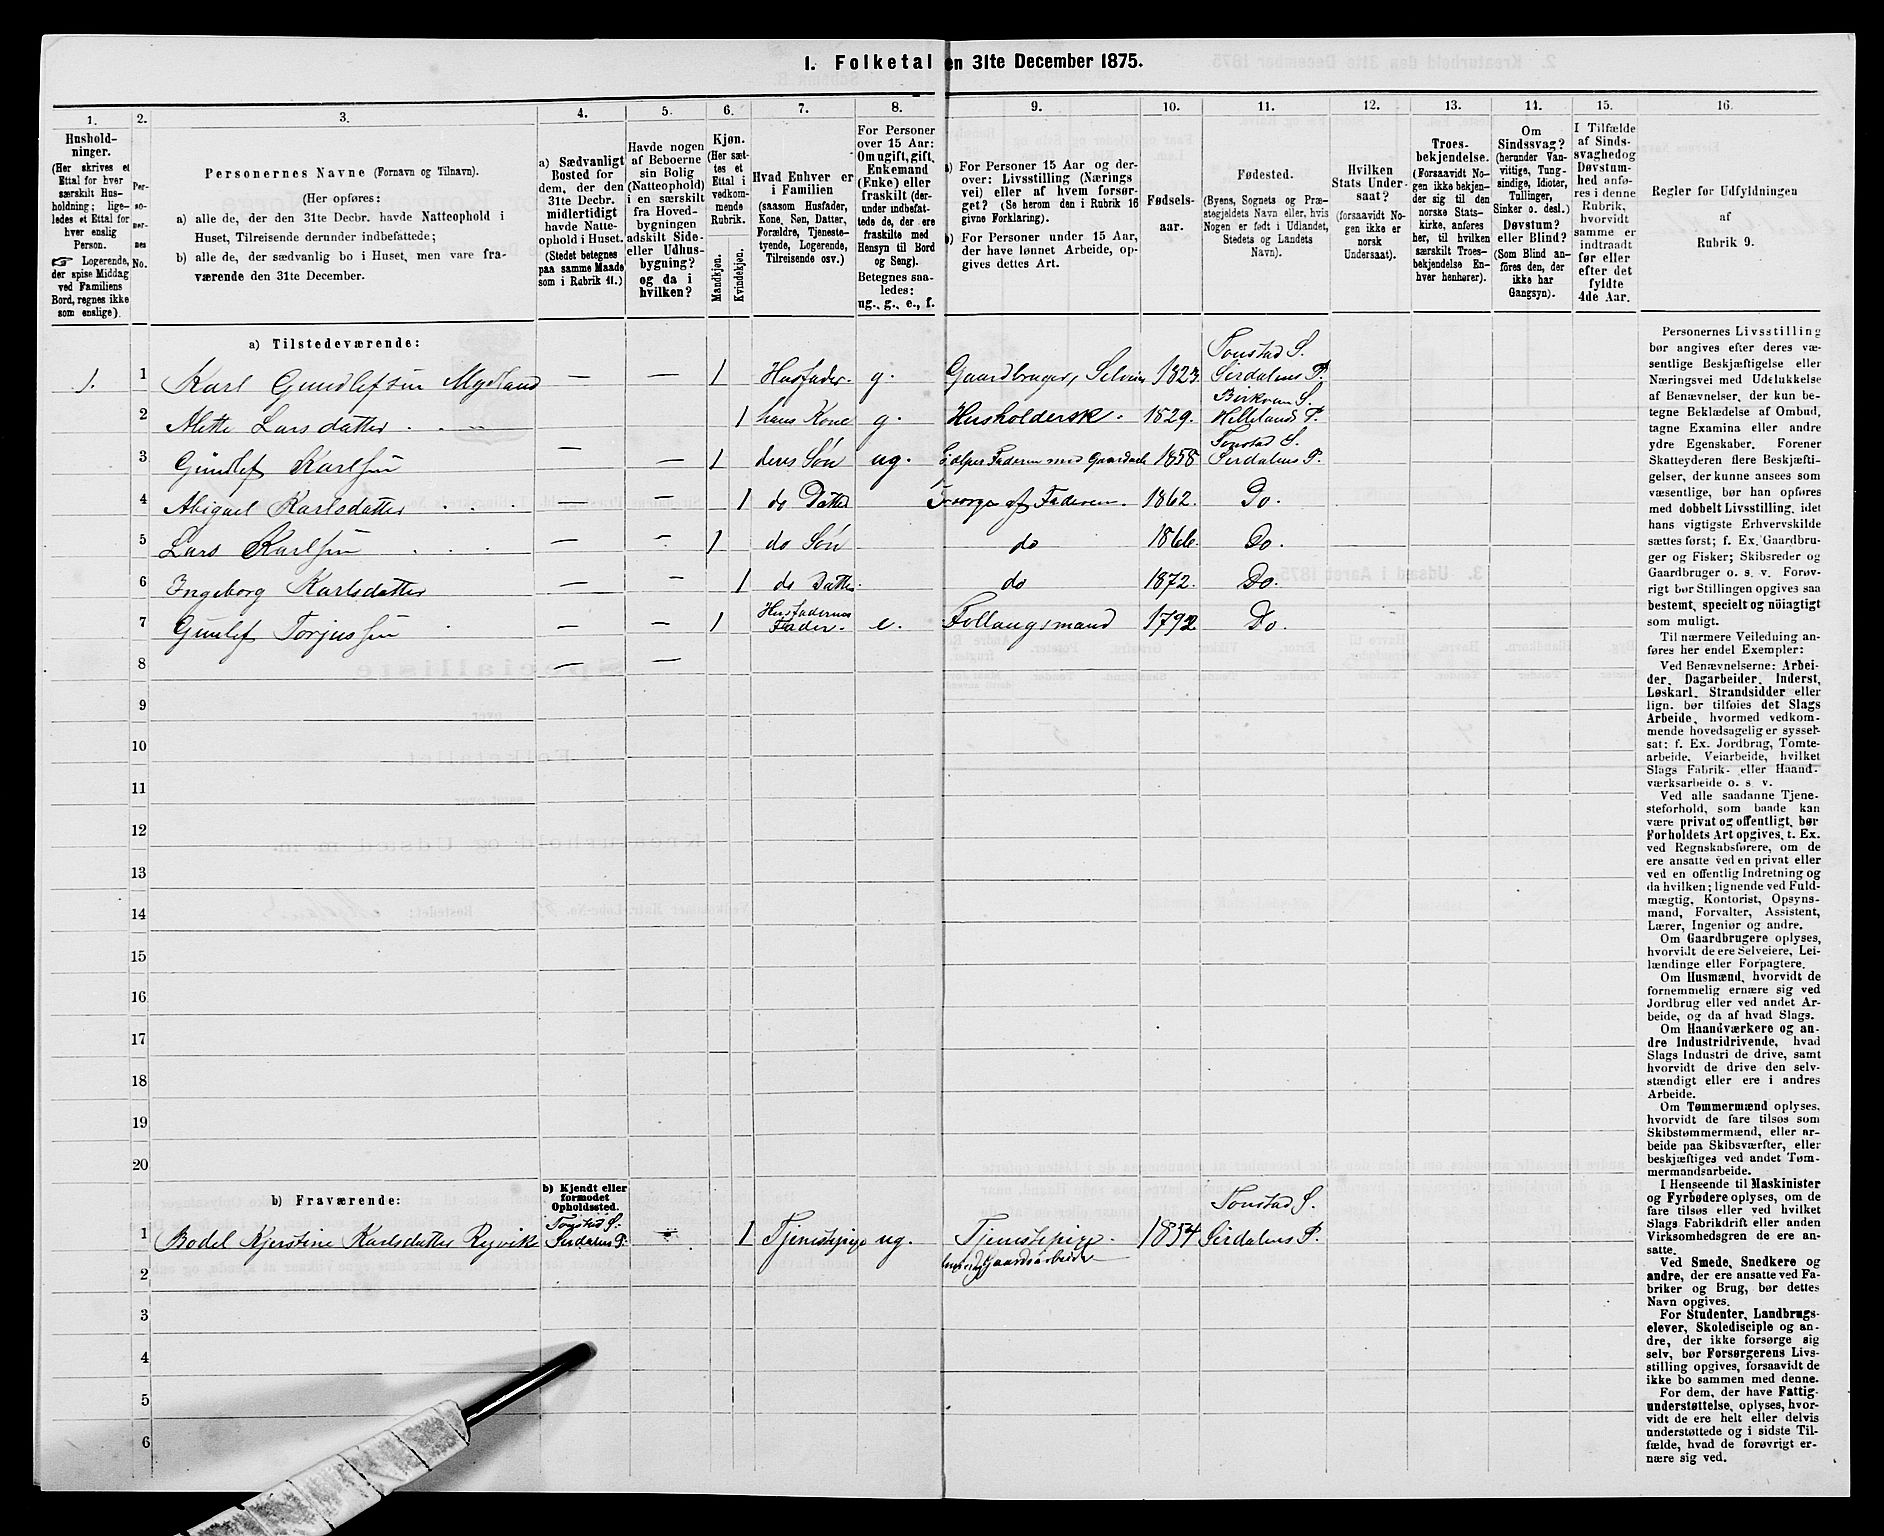 I. Folketal en 31te December 1875.
1.
Hushold-
ninger.
(Her skrives et
Ettal for hver
særskilt Hus-
holdning; lige-
ledes et Ettal for
hver enslig
Person.
☞ Logerende,
der spise Middag
ved Familiens
Bord, regnes ikke
som enslige).
2.
Per-
so-
ner-
nes
No.
3.
Personernes Navne (Fornavn og Tilnavn).
(Her opføres:
a) alle de, der den 31te Decbr. havde Natteophold i
Huset, Tilreisende derunder indbefattede;
b) alle de, der sædvanlig bo i Huset, men vare fra-
værende den 31te December.
4.
a) Sædvanligt
Bosted for
dem, der den
31te Decbr.
midlertidigt
havde Natte-
ophold i Huset.
(Stedet betegnes
paa samme Maade
som i Rubrik 11.)
5.
Havde nogen
af Beboerne
sin Bolig
(Natteophold)
i en særskilt
fra Hoved-
bygningen
adskilt Side-
eller Udhus-
bygning?
og da i
hvilken?
6.
Kjøn.
(Her sæt-
tes et
Ettal i
vedkom-
mende
Rubrik.
Mandkjøn.
Kvindekjøn.
7.
Hvad Enhver er
i Familien
(saasom Husfader,
Kone, Søn, Datter,
Forældre, Tjeneste-
tyende, Logerende,
Tilreisende osv.)
8.
For Personer
over 15 Aar:
Om ugift, gift,
Enkemand
(Enke) eller
fraskilt (der-
under indbefat-
tede de, der ere
fraskilte med
Hensyn til Bord
og Seng).
Betegnes saa-
ledes:
ug., g., e., f.
9.
a) For Personer 15 Aar og der-
over: Livsstilling (Nærings
vei) eller af hvem forsør-
get? (Se herom den i Rubrik 16
givne Forklaring).
b) For Personer under 15 Aar,
der have lønnet Arbeide, op-
gives dettes Art.
10.
Fødsels-
aar.
11.
Fødested.
(Byens, Sognets og Præ-
stegjeldets Navn eller, hvis
Nogen er født i Udlandet,
Stedets og Landets
Navn).
12.
Hvilken
Stats Under-
saat?
(forsaavidt No-
gen ikke er
norsk
Undersaat).
13.
Troes-
bekjendelse.
(Forsaavidt No-
gen ikke bekjen-
der sig til den
norske Stats-
kirke, anføres
her, til hvilken
særskilt Troes-
bekjendelse En-
hver henhører).
14.
Om
Sindssvag?
(herunder Van-
vittige, Tung-
sindige, Idioter,
Tullinger,
Sinker o. desl.)
Døvstum?
eller Blind?
(Som Blind an-
føres den, der
ikke har
Gangsyn).
15.
I Tilfælde
af Sinds-
svaghed og
Døvstum-
hed anfø-
res i denne
Rubrik,
hvorvidt
samme er
indtraadt
før eller
efter det
fyldte
4de Aar.
16.
Regler for Udfyldningen
af
Rubrik 9.
a) Tilstedeværende:
1. 1 Karl Gundlefsen Mydland — — 1 Husfader g. Gaardbruger, Selveier 1823. Tonstad S. Sirdalens P.
2 Mette Larsdatter 1 hans Kone g. 1829. Helleland P.
3 Gundlef Karlsen — — 1 deres Søn ug. hjelper Faderen med 1858 Tonstad S. Sirdalens P.
4 Abigael Karlsdatter — — 1 do Datter Forsørges af Faderen. 1862. Do.
5 Lars Karlsen — — 1 do Søn do 1866. Do.
6 Ingeborg Karlsdatter — — 1 do Datter do 1872. Do.
7 Gunlef Torjussen — — 1 Husfaderens Fader. e. Follaugsmand 1792. Do.
8 — —
9
10
11
12
13
14
15
16
17
18
19
20
b) Fraværende:
b) Kjendt eller
formodet
Opholdssted.
1 Bodel Kjerstine Karlsdatter Tonstad S. Sirdalens P. — 1 Tjenestepige ug. Tjenestepige. Gaardsarbeide 1854 Tonstad S. Sirdalens P.
2
3
4
5
6
Personernes Livsstilling
bør angives efter deres væ-
sentlige Beskjæftigelse eller
Næringsvei med Udelukkelse
af Benævnelser, der kun be-
tegne Beklædelse af Ombud,
tagne Examina eller andre
ydre Egenskaber. Forener
Skatteyderen flere Beskjæfti-
gelser, der kunne ansees som
væsentlige, bør han opføres
med dobbelt Livsstilling, idet
hans vigtigste Erhvervskilde
sættes først; f. Ex. Gaardbru-
ger og Fisker; Skibsreder og
Gaardbruger o. s. v. Forøv-
rigt bør Stillingen opgives saa
bestemt, specielt og nøiagtigt
som muligt.
Til nærmere Veiledning an-
føres her endel Exempler:
Ved Benævnelserne: Arbei-
der, Dagarbeider, Inderst,
Løskarl, Strandsidder eller
lign. bør tilføies det Slags
Arbeide, hvormed vedkom-
mende hovedsagelig er syssel-
sat; f. Ex. Jordbrug, Tomte-
arbeide, Veiarbeide, hvilket
Slags Fabrik- eller Haand-
værksarbeide o. s. v.
Ved alle saadanne Tjene-
steforhold, som baade kan
være privat og offentligt, bør
Forholdets Art opgives, t. Ex.
ved Regnskabsførere, om de
ere ansatte ved en privat eller
ved en offentlig Indretning og
da hvilken; lignende ved Fuld-
mægtig, Kontorist, Opsyns-
mand, Forvalter, Assistent,
Lærer, Ingeniør og andre.
Om Gaardbrugere oplyses,
hvorvidt de ere Selveiere, Lei-
lændinge eller Forpagtere.
Om Husmænd, hvorvidt de
fornemmelig ernære sig ved
Jordbrug eller ved andet Ar-
beide, og da af hvad Slags.
Om Haandværkere og an-
dre Industridrivende, hvad
Slags Industri de drive, samt
hvorvidt de drive den selv-
stændigt eller ere i andres
Arbeide.
Om Tømmermænd oplyses,
hvorvidt de fare tilsøs som
Skibstømmermænd, eller ar-
beide paa Skibsværfter, eller
beskjæftiges ved andet Tøm-
mermandsarbeide.
I Henseende til Maskinister
og Fyrbødere oplyses, om de
fare tilsøs eller ved hvilket
Slags Fabrikdrift eller anden
Virksomhedsgren de ere an-
satte.
Ved Smede, Snedkere og
andre, der ere ansatte ved Fa-
briker og Brug, bør dettes
Navn opgives.
For Studenter, Landbrugs-
elever, Skoledisciple og an-
dre, der ikke forsørge sig
selv, bør Forsørgerens Livs-
stilling opgives, forsaavidt de
ikke bo sammen med denne.
For dem, der have Fattig-
understøttelse, oplyses, hvor-
vidt de ere helt eller delvis
understøttede og i sidste Til-
fælde, hvad de forøvrigt er-
nære sig ved.